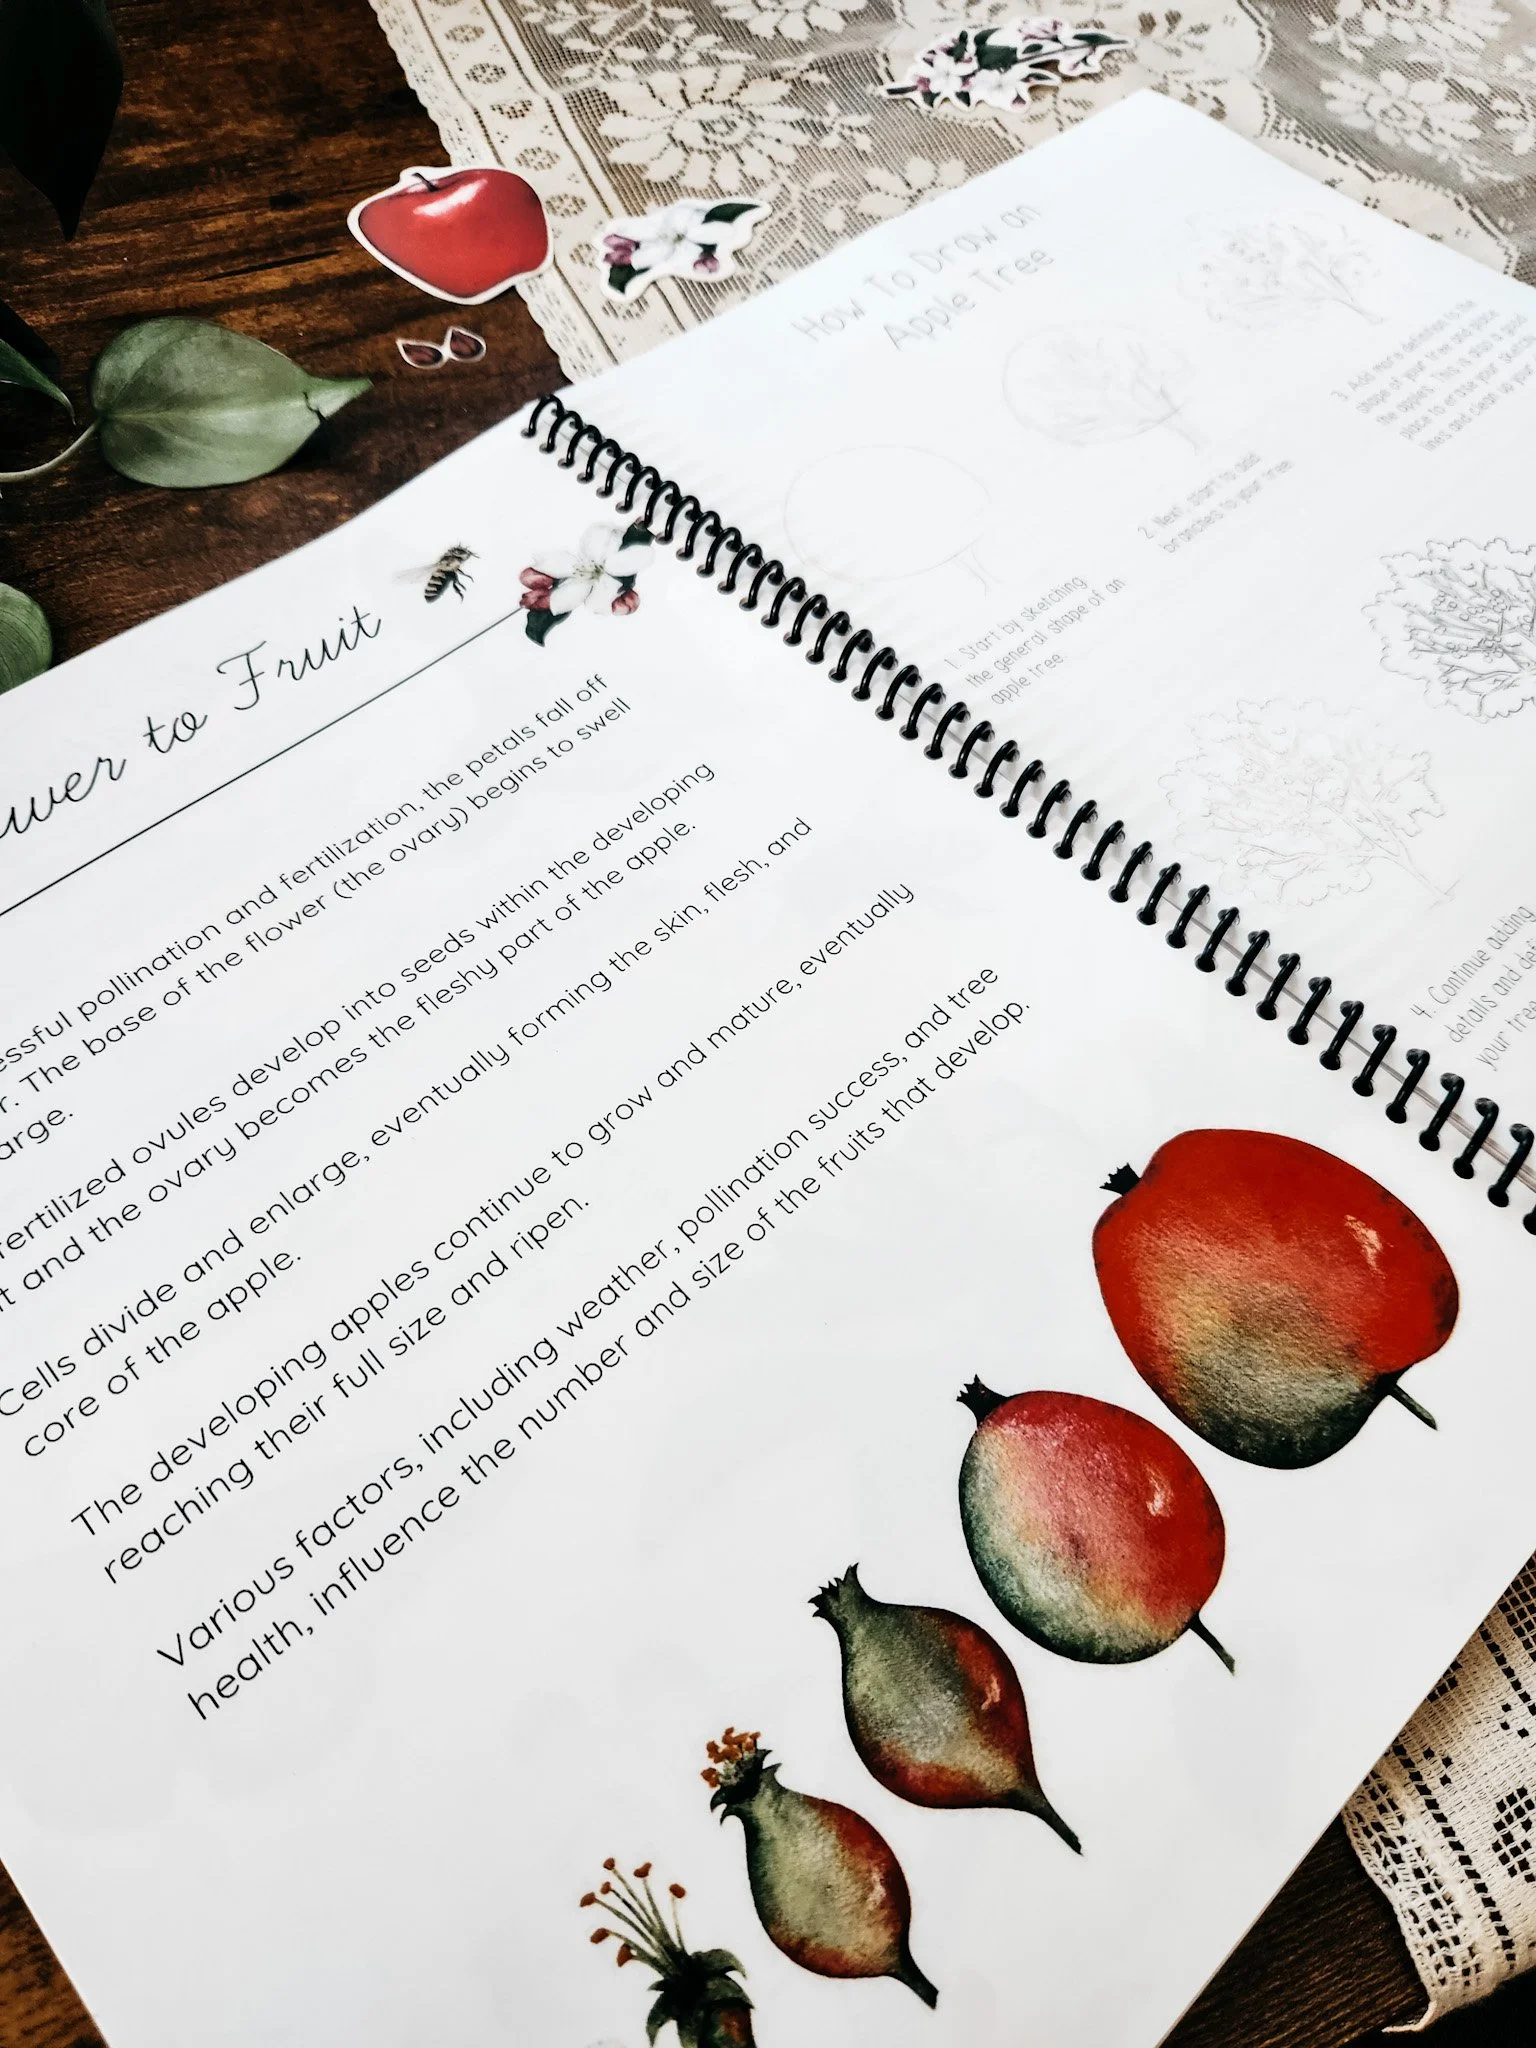 to Fruit
pollination and fertilization, the petals fall off
The base of the flower (the ovary) begins to swell
fertilized ovules develop into seeds within the developing
and the ovary becomes the fleshy part of the apple.
Cells divide and enlarge, eventually forming the skin, flesh, and
core of the apple.
The developing apples continue to grow and mature, eventually
reaching their full size and ripen.
Various factors, including weather, pollination success, and tree
health, influence the number and size of the fruits that develop.
How To Draw an
Apple Tree
1. Start by sketching
the general shape of an
apple tree.
2. Next, start to add
branches to your tree.
3. Add more definition to the
shape of your tree and place
the apples. This is also a good
place to erase your
lines and clean up your
4. Continue adding
details and
your tree